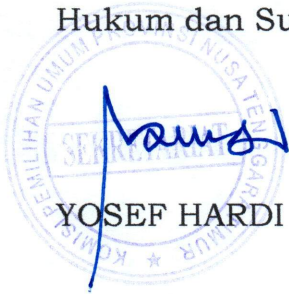 Hukum dan Su
KOMISI PEMILIHAN UMUM PROVINSI NUSA TENGGARA TIMUR
SEKRETARIAT
YOSEF HARDI